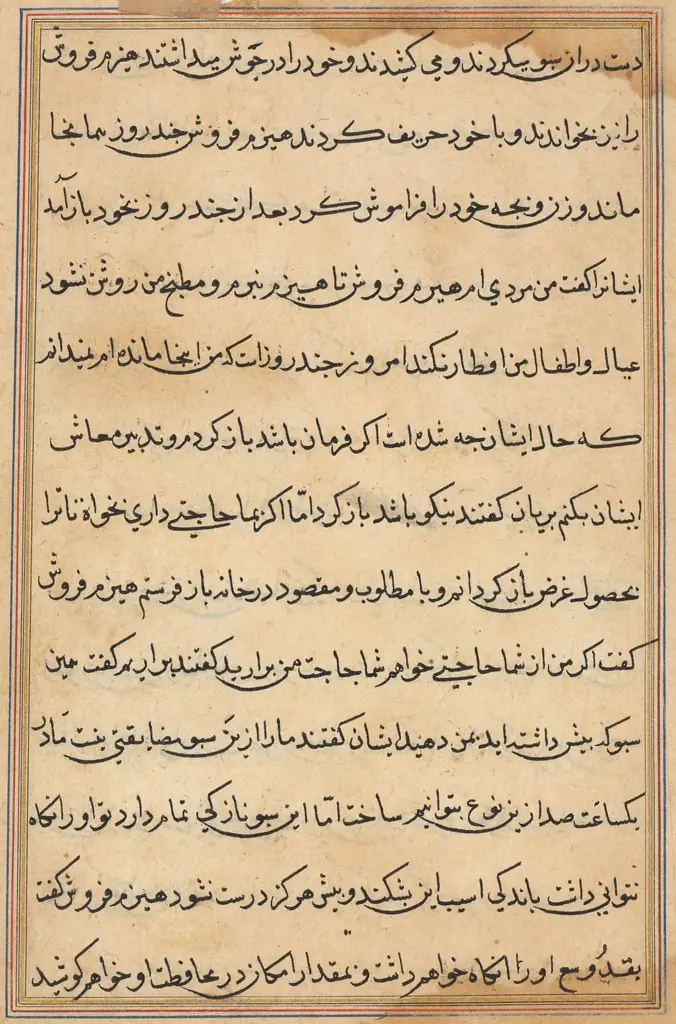 دست دران سبو میکردند و می کشیدند و خود را در جوش میداشتند هیزم فروش
را نزد بخواندند و با خود حریف کردند هیزم فروش چند روز همانجا
ماند و زن و بچه خود را فراموش کرد بعد از چند روز بخود باز آمد
ایشانرا گفت من مردی ام هیزم فروش تا هیزم نبرم و مطبخ من روشن نشود
عیال و اطفال من افطار نکنند امروز چند روز است که من اینجا مانده ام نمیدانم
که حال ایشان چه شده است اگر فرمان باشد باز کردم و تدبیر معاش
ایشان بکنم پریان گفتند نیکو باشد باز کرد اما اگر بما حاجتی داری بخواه تا ترا
بحصول غرض باز کردانم و با مطلوب و مقصود در خانه باز فرستم هیزم فروش
گفت اگر من از شما حاجتی خواهم شما حاجت من برارید گفتند براریم گفت همین
سبو که پیش داشته اید بمن دهید ایشان گفتند ما را ازین سبو مضایقتی نیست ما در
یکساعت صد ازین نوع بتوانیم ساخت اما این سبو نازکی تمام دارد تو او را نگاه
نتوانی داشت باندکی اسیب این بشکند و پیش هرگز درست نشود هیزم فروش گفت
بقدر وسع او را نگاه خواهم داشت و بمقدار امکان در محافظت او خواهم کوشید